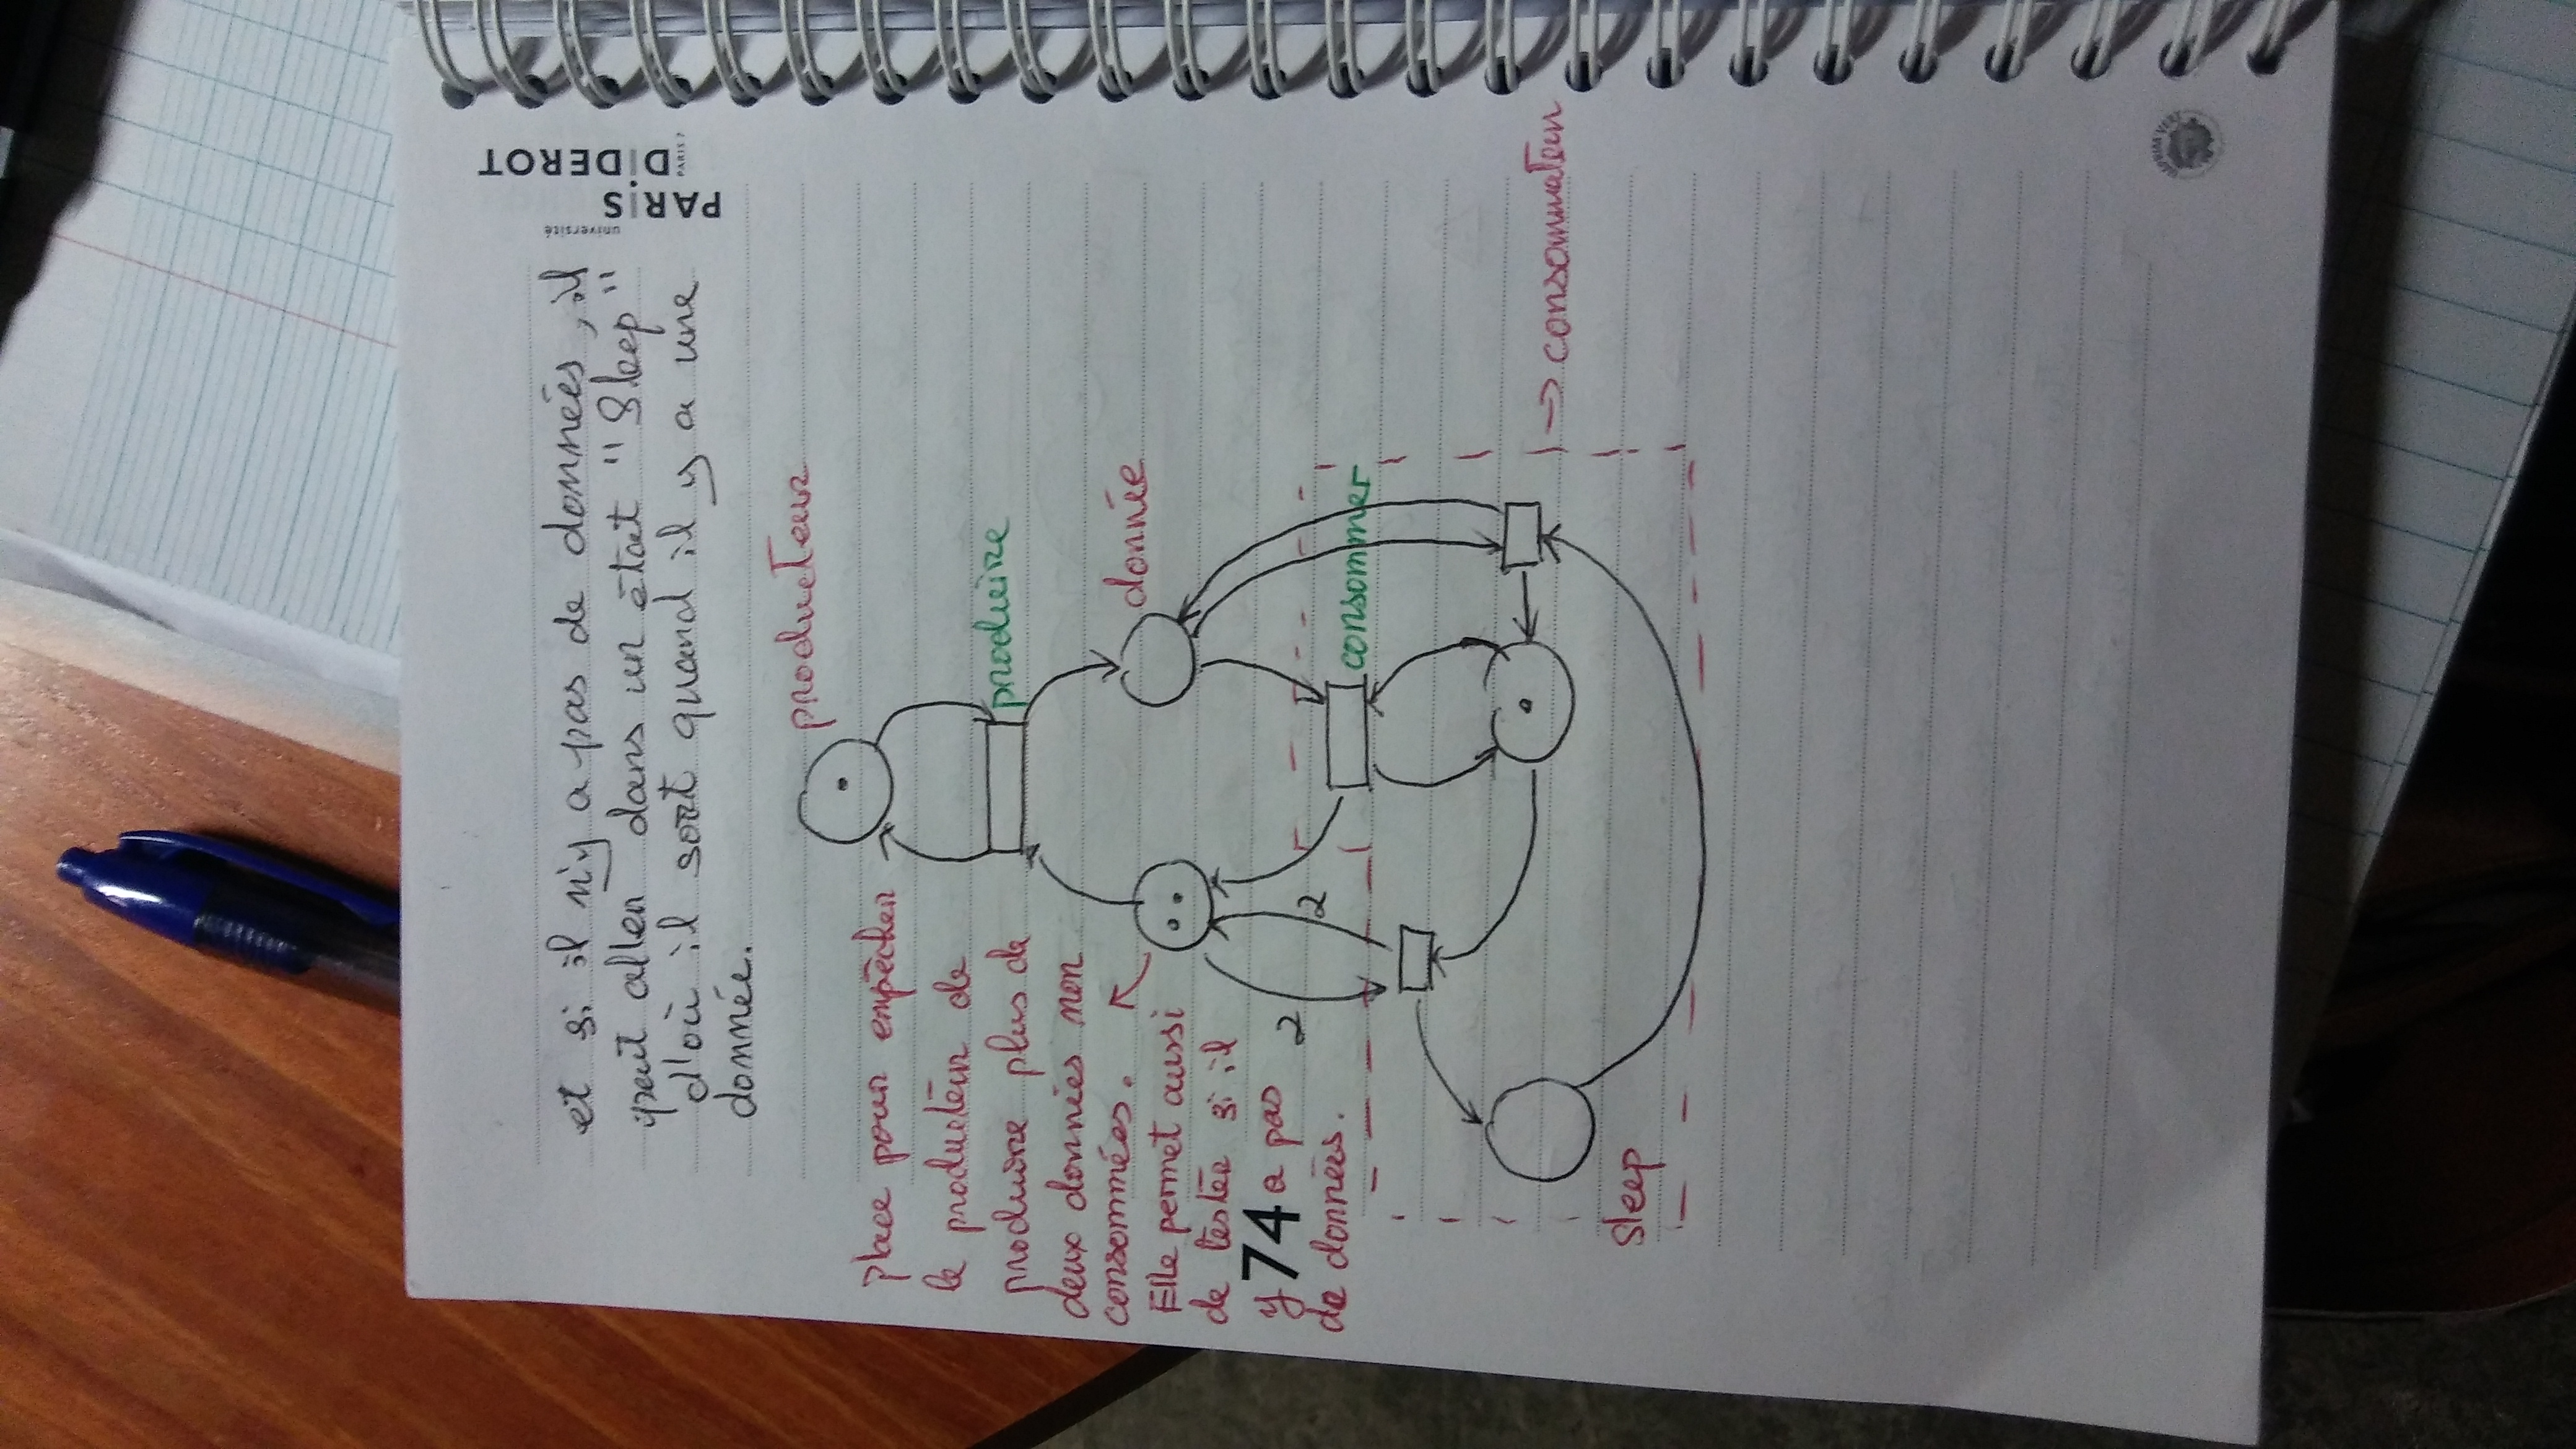 et si il n'y a pas de données, il
peut aller dans un état "Sleep"
d'où il sort quand il y a une
donnée.
université
PARIS
DIDEROT
PARIS 7
producteur
place pour empêcher
le producteur de
produire plus de
deux données non
consommées.
Elle permet aussi
de tester si il
y 74 a pas
de données.
produire
donnée
2
2
consommer
consommateur
sleep
IMPRIM'VERT